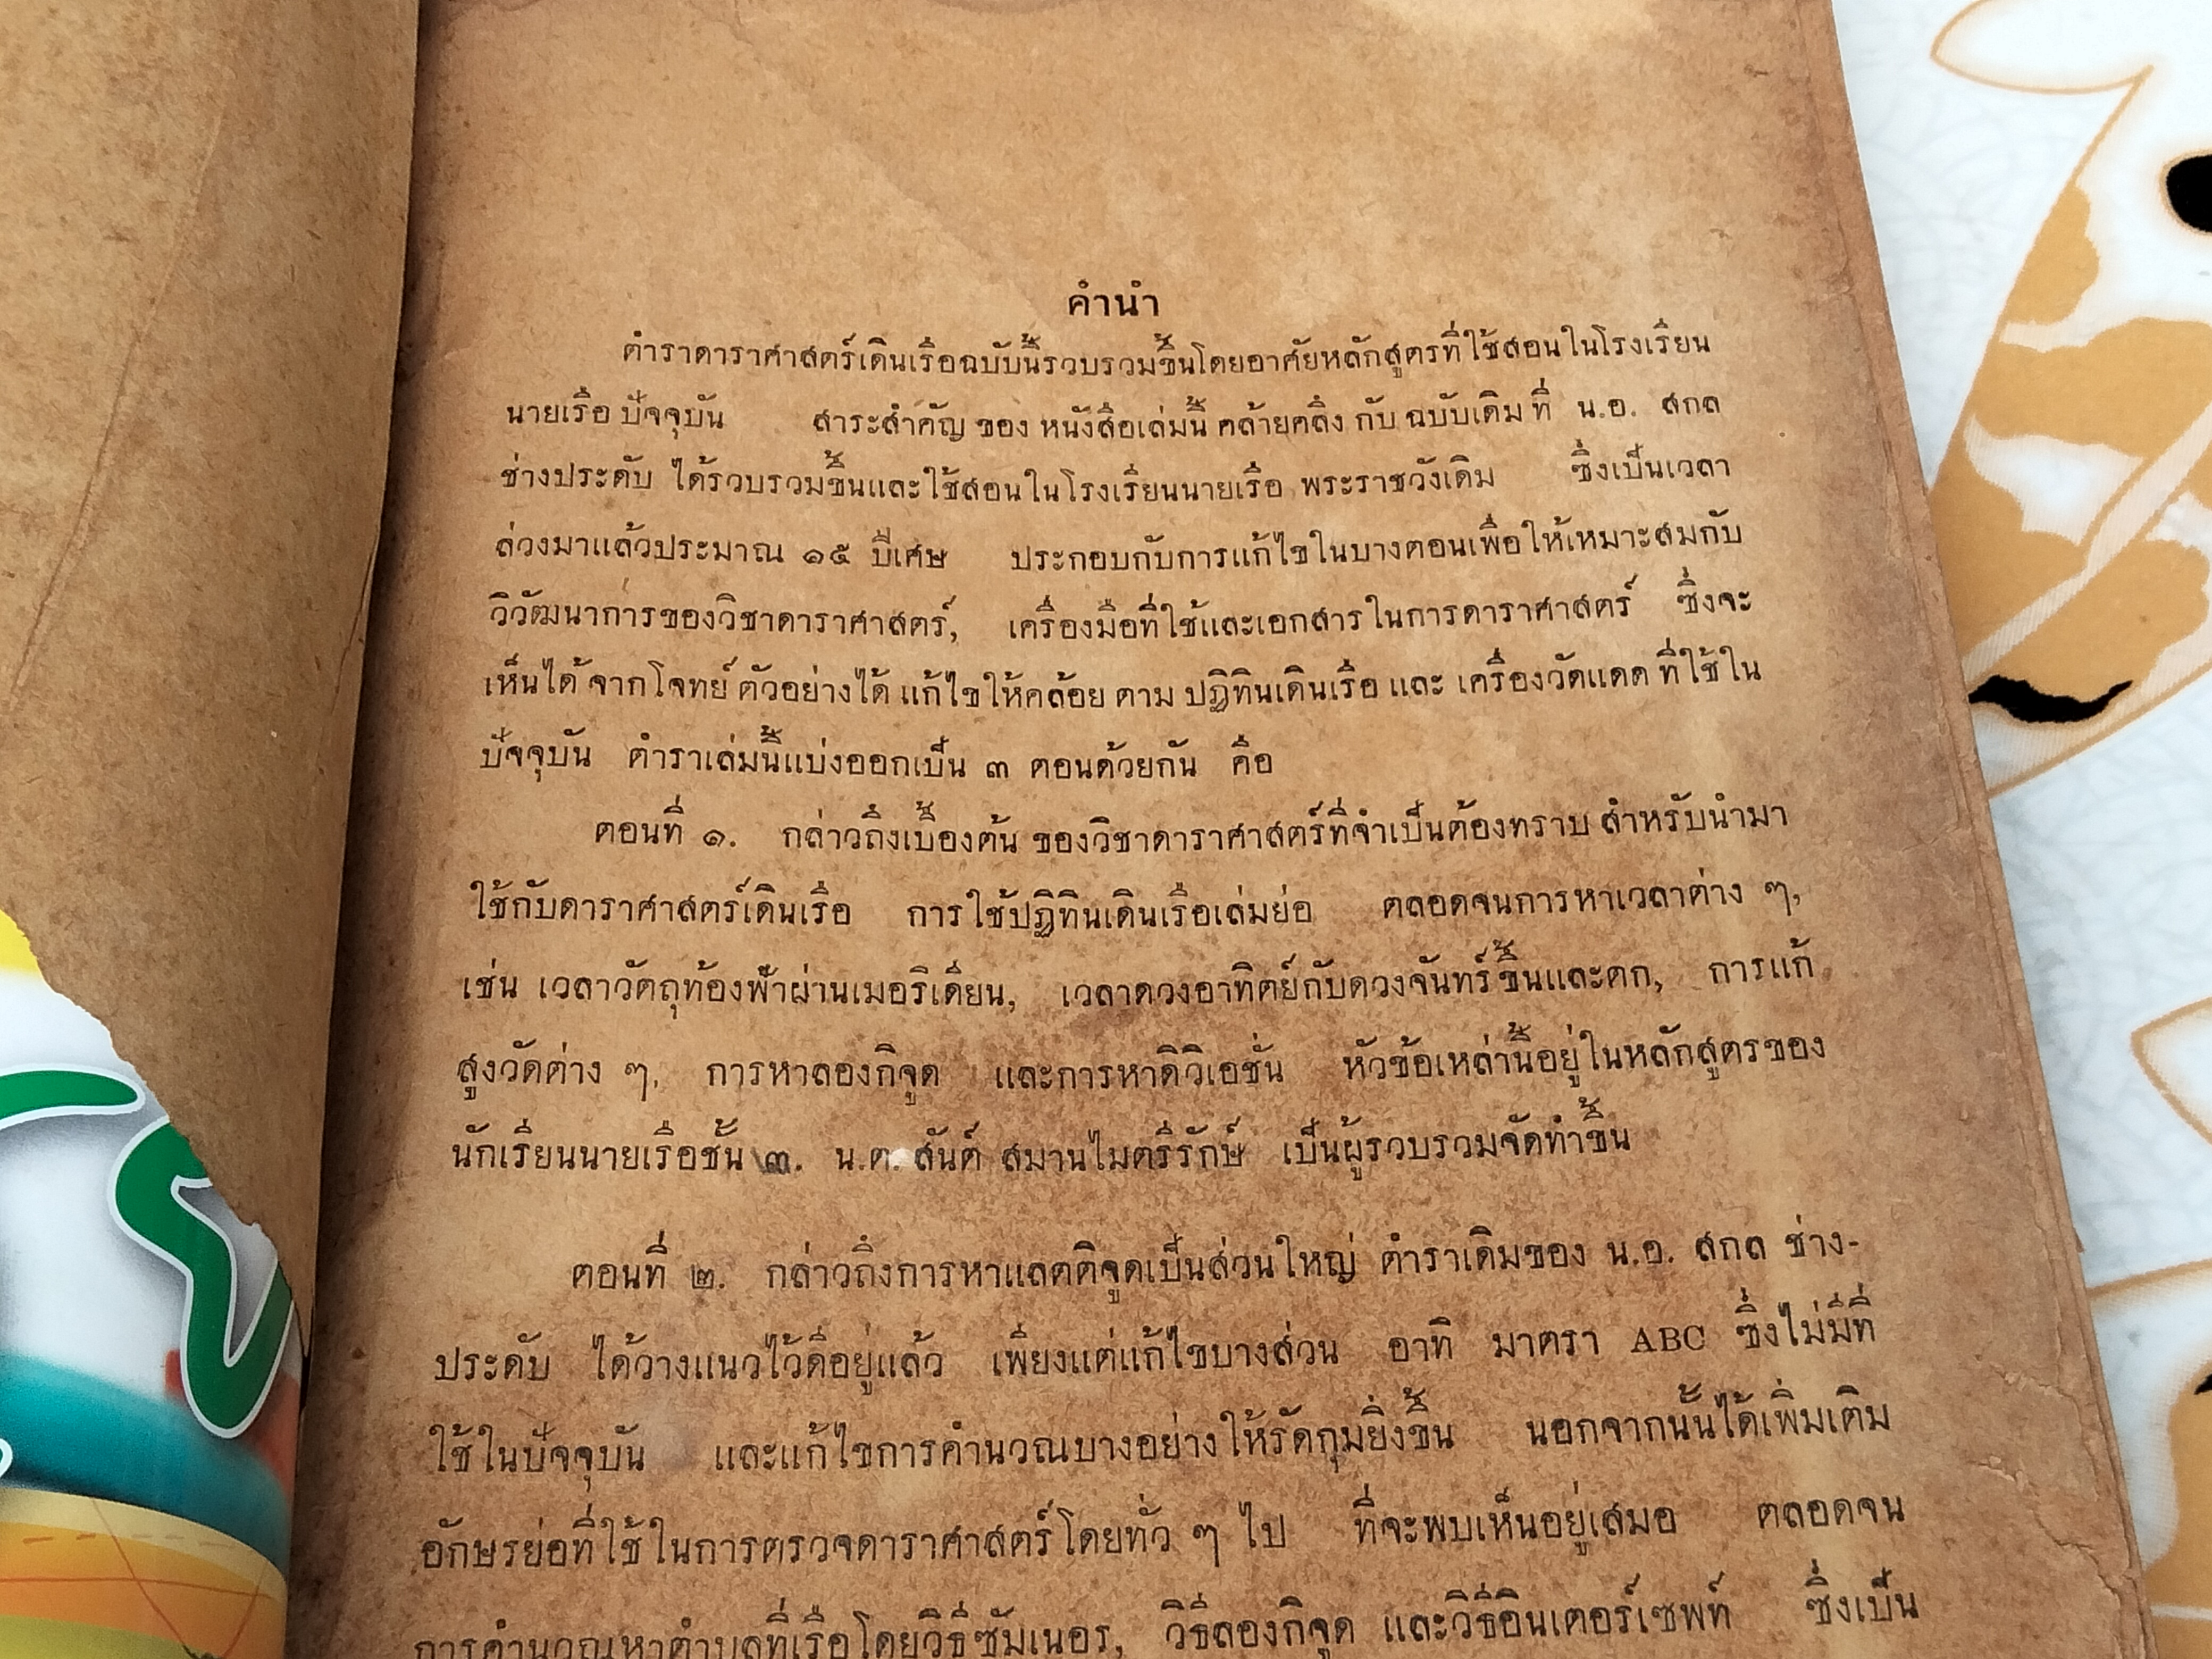 คำนำ
ตำราดาราศาสตร์เดินเรือฉบับนี้รวบรวมขึ้นโดยอาศัยหลักสูตรที่ใช้สอนในโรงเรียน
นายเรือ ปัจจุบัน สาระสำคัญ ของ หนังสือเล่มนี้ คล้ายคลึง กับ ฉบับเดิม ที่ น.อ. สกล
ช่างประดับ ได้รวบรวมขึ้นและใช้สอนในโรงเรียนนายเรือ พระราชวังเดิม ซึ่งเป็นเวลา
ล่วงมาแล้วประมาณ ๑๕ ปีเศษ ประกอบกับการแก้ไขในบางตอนเพื่อให้เหมาะสมกับ
วิวัฒนาการของวิชาดาราศาสตร์, เครื่องมือที่ใช้และเอกสารในการดาราศาสตร์ ซึ่งจะ
เห็นได้ จากโจทย์ ตัวอย่างได้ แก้ไขให้คล้อย ตาม ปฏิทินเดินเรือ และ เครื่องวัดแดด ที่ใช้ใน
ปัจจุบัน ตำราเล่มนี้แบ่งออกเป็น ๓ ตอนด้วยกัน คือ
ตอนที่ ๑. กล่าวถึงเบื้องต้น ของวิชาดาราศาสตร์ที่จำเป็นต้องทราบ สำหรับนำมา
ใช้กับดาราศาสตร์เดินเรือ การใช้ปฏิทินเดินเรือเล่มย่อ ตลอดจนการหาเวลาต่าง ๆ,
เช่น เวลาวัตถุท้องฟ้าผ่านเมอริเดียน, เวลาดวงอาทิตย์กับดวงจันทร์ขึ้นและตก, การแก้
สูงวัดต่าง ๆ, การหาลองกิจูด และการหาดิวิเอชั่น หัวข้อเหล่านี้อยู่ในหลักสูตรของ
นักเรียนนายเรือชั้น ๓. น.ต. สันต์ สมานไมตรีรักษ์ เป็นผู้รวบรวมจัดทำขึ้น
ตอนที่ ๒. กล่าวถึงการหาแลตติจูดเป็นส่วนใหญ่ ตำราเดิมของ น.อ. สกล ช่าง-
ประดับ ได้วางแนวไว้ดีอยู่แล้ว เพียงแต่แก้ไขบางส่วน อาทิ มาตรา ABC ซึ่งไม่มีที่
ใช้ในปัจจุบัน และแก้ไขการคำนวณบางอย่างให้รัดกุมยิ่งขึ้น นอกจากนั้นได้เพิ่มเติม
อักษรย่อที่ใช้ในการตรวจดาราศาสตร์โดยทั่ว ๆ ไป ที่จะพบเห็นอยู่เสมอ ตลอดจน
การคำนวณหาตำบลที่เรือโดยวิธีซัมเนอร, วิธีลองกิจูด และวิธีอินเตอร์เซพท์ ซึ่งเป็น